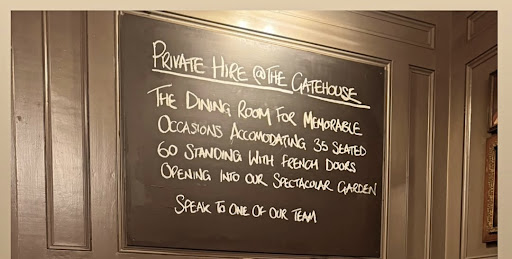 PRIVATE HIRE @THE GATEHOUSE
THE DINING ROOM FOR MEMORABLE
OCCASIONS ACCOMODATING 35 SEATED
60 STANDING WITH FRENCH DOORS
OPENING INTO OUR SPECTACULAR GARDEN
SPEAK TO ONE OF OUR TEAM